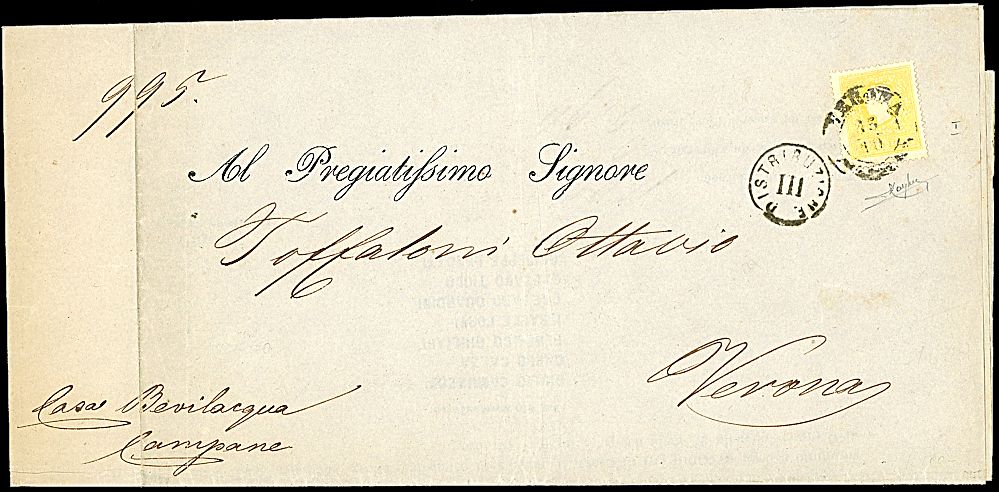 995.
VERONA
15 1
10 A
I
DISTRIBUZIONE
III
Al Pregiatiſsimo Signore
Toffaloni Ottavio
Verona
Casa Bevilacqua
Campane